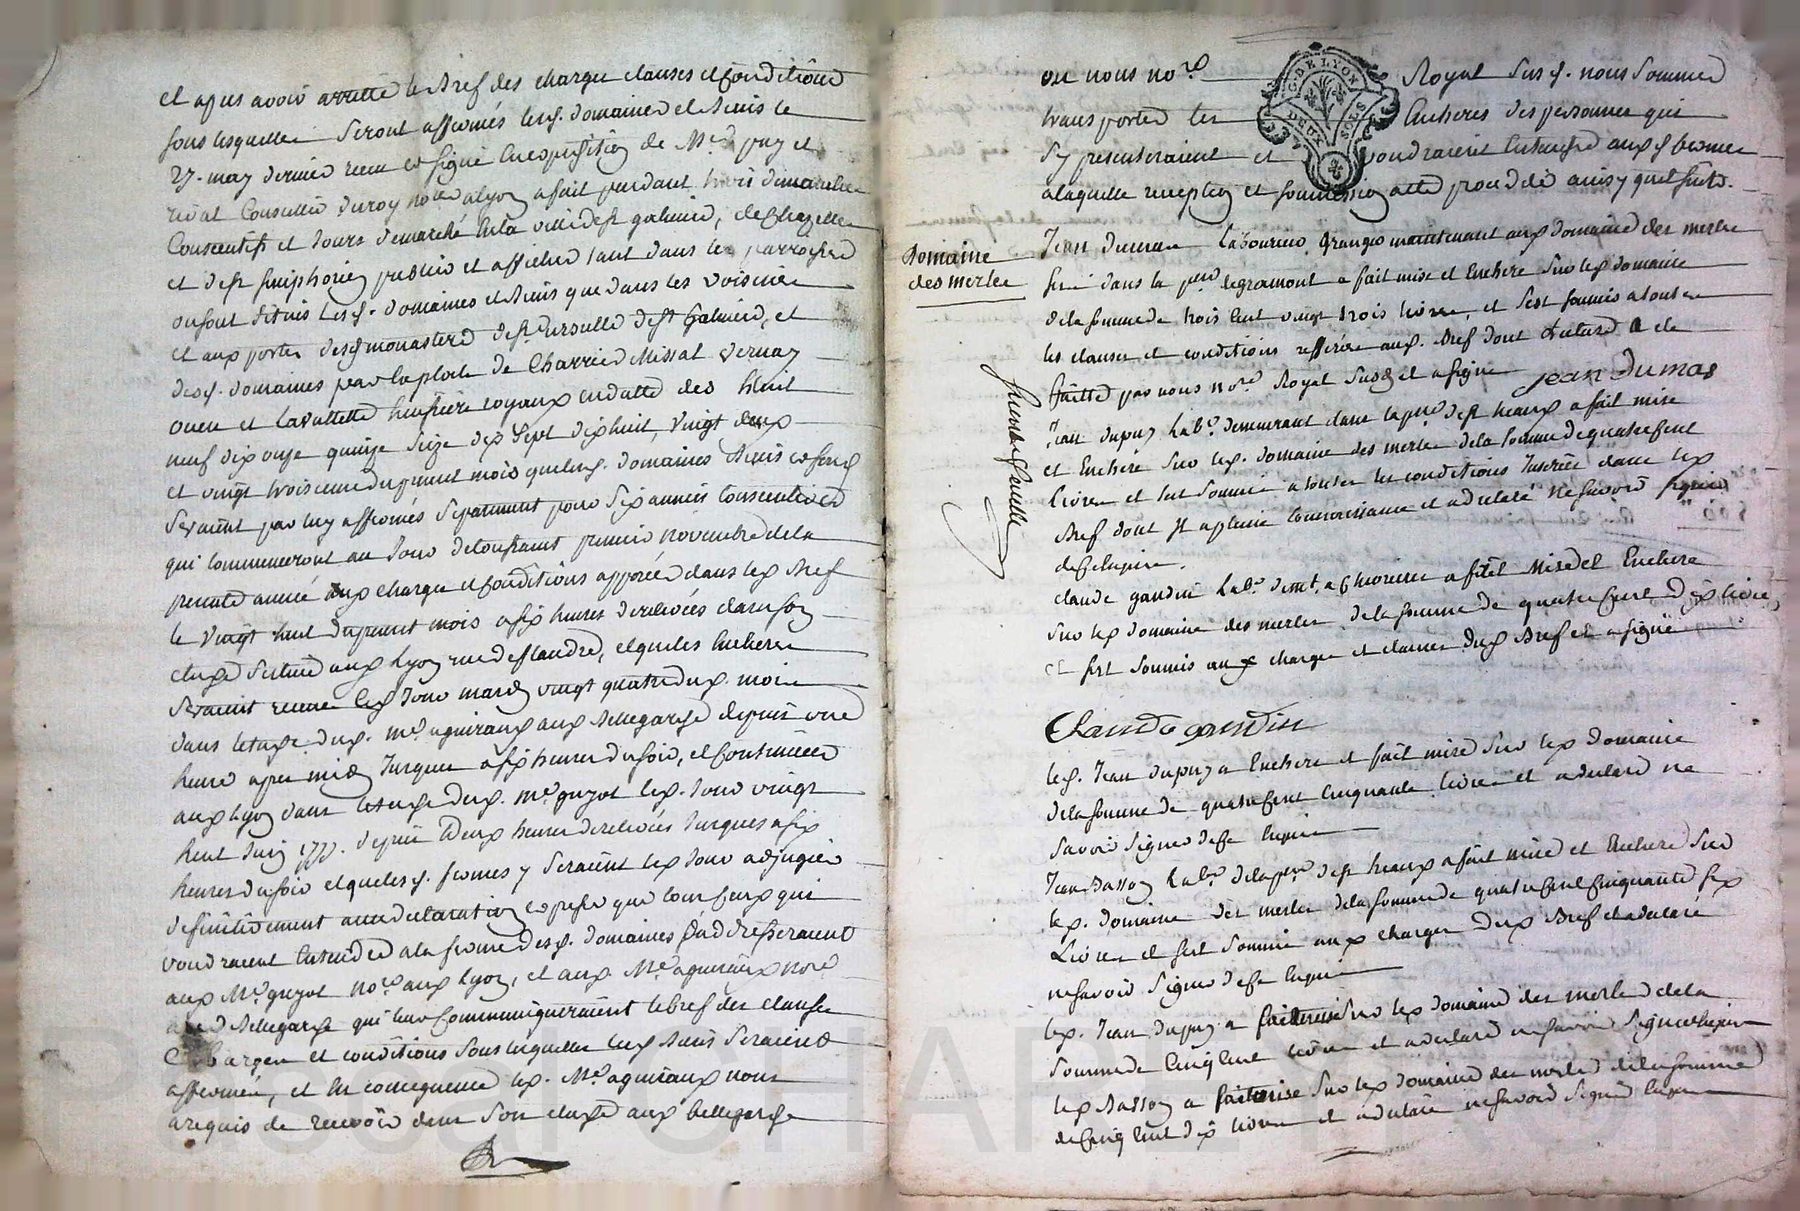 et apres avoir arretté le Bref des charges clauses et conditions
sous lesquelles seront affermés lesd. domaines et
27. may dernier recu et signé en exposition de Me guyot et
Conseiller du roy nore a lyon a fait pendant trois dimanches
Consecutifs et jours de marché en la ville de st galmier, de Chazelles
et de st simphorien publier et afficher tant dans les parroisses
ou sont situés lesd. domaines et que dans les voisines
et aux portes desd monastere de ste Ursulle de st Galmier, et
desd. domaines par exploits de Charrier Missal Vernay
et Lavallette huissiers royaux en datte des huit
neuf dix onze quinze seize dix sept dix huit, vingt deux
et vingt trois du present mois que lesd. domaines
seraient par luy affermés separement pour six années consecutives
qui commenceront au jour de toussaint premier novembre de la
presente année aux charges et conditions apposées dans led Bref
le vingt huit du present mois a six heures de relevées dans son
etude scituée aud Lyon rue de flandre, et que les encheres
seraient recues led jour mardy vingt quatre dud. mois
dans letude dud. me aguiraux aud Bellegarde depuis une
heure apres midy jusques a six heures du soir, et continuées
aud Lyon dans letude dud. me guyot led. jour vingt
huit juin 1777. depuis deux heures de relevées jusques a six
heures du soir et que lesd. fermes y seraient led jour adjugées
definitivement avec declaration expresse que tous ceux qui
voudraient entendre a la ferme desd. domaines s'addresseraient
aud Me guyot nore aud Lyon, et aud Me aguiraux nore
aud Bellegarde qui leur communiqueraient le bref des clauses
Charges et conditions sous lesquelles lesd seraient
affermés, et en consequence led. Me aguiraux nous
a requis de recevoir dans son etude aud bellegarde
ou nous nore Royal susd. nous sommes
transportes les Encheres des personnes qui
sy presenteraient et voudraient entendre auxd fermes
a laquelle reception et soumission a été procedé ainsy quil suit.
Domaine
des merles
Jean dumas laboureur Granger maintenant aud domaine des merles
sis dans la psse de gramont a fait mise et Enchere sur led domaine
de la somme de trois cent vingt trois livres, et sest soumis a toutes
les clauses et conditions inserées aud. Bref dont lecture a ete
faitte par nous nore Royal susd et a signé Jean dumas
Jean dupuy labr. demeurant dans la psse de st heaux a fait mise
et Enchere sur led. domaine des merles de la somme de quatre cent
livres et sest soumis a toutes les conditions Inserées dans led
Bref dont Il a pleine connoissance et a declaré ne savoir signer
de ce enquis.
claude gandin labr. demt. a a fait mise et Enchere
sur led domaine des merles de la somme de quatre cent dix livres
et sest soumis aux charges et clauses dud Bref et a signé
Claude gandin
led. Jean dupuy a Encheré et fait mise sur led domaine
de la somme de quatre cent cinquante livres et a declaré ne
savoir signer de ce enquis
Jean Basson labr. de la psse de st heaux a fait mise et Enchere sur
led. domaine des merles de la somme de quatre cent cinquante six
Livres et sest soumis aux charges dud Bref et a declaré
ne savoir signer de ce enquis
led. Jean dupuy a fait mise sur led domaine des merles de la
somme de cinq cent livres et a declaré ne savoir signer enquis
led Basson a fait mise sur led domaine des merles de la somme
de cinq cent dix livres et a declaré ne savoir signer enquis
G. DE LYON
DEUX SOLS
Pascal CHAREYRON